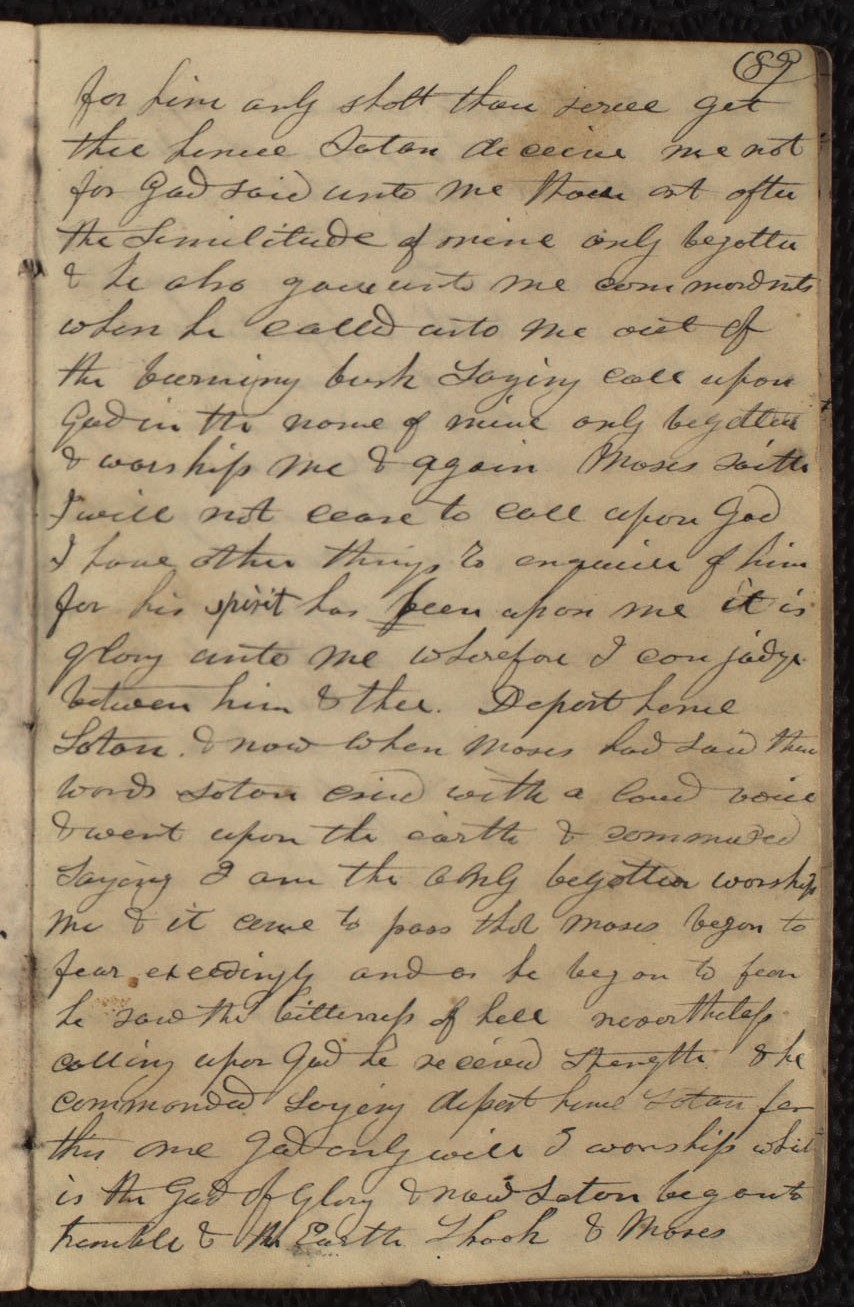 (89)
for him only shalt thou serve get
thee hence Satan deceive me not
for God said unto me thou art after
the Similitude of mine only begotten
& he also gave unto me commandmts
when he called unto me out of
the burning bush Saying call upon
God in the name of mine only begotten
& worship me & again Moses saith
I will not cease to call upon God
I have other things to enquire of him
for his spirit has been upon me it is
glory unto me wherefore I can judge
between him & thee. Depart hence
Satan. & now when Moses had said these
words Satan cried with a loud voice
& went upon the earth & commanded
Saying I am the only begotten worship
me & it came to pass that Moses began to
fear exceedingly and as he began to fear
he saw the bitterness of hell nevertheless
calling upon God he received strength & he
commanded saying depart hence Satan for
this one God only will I worship which
is the God of Glory & now Satan began to
tremble & the Earth Shook & Moses